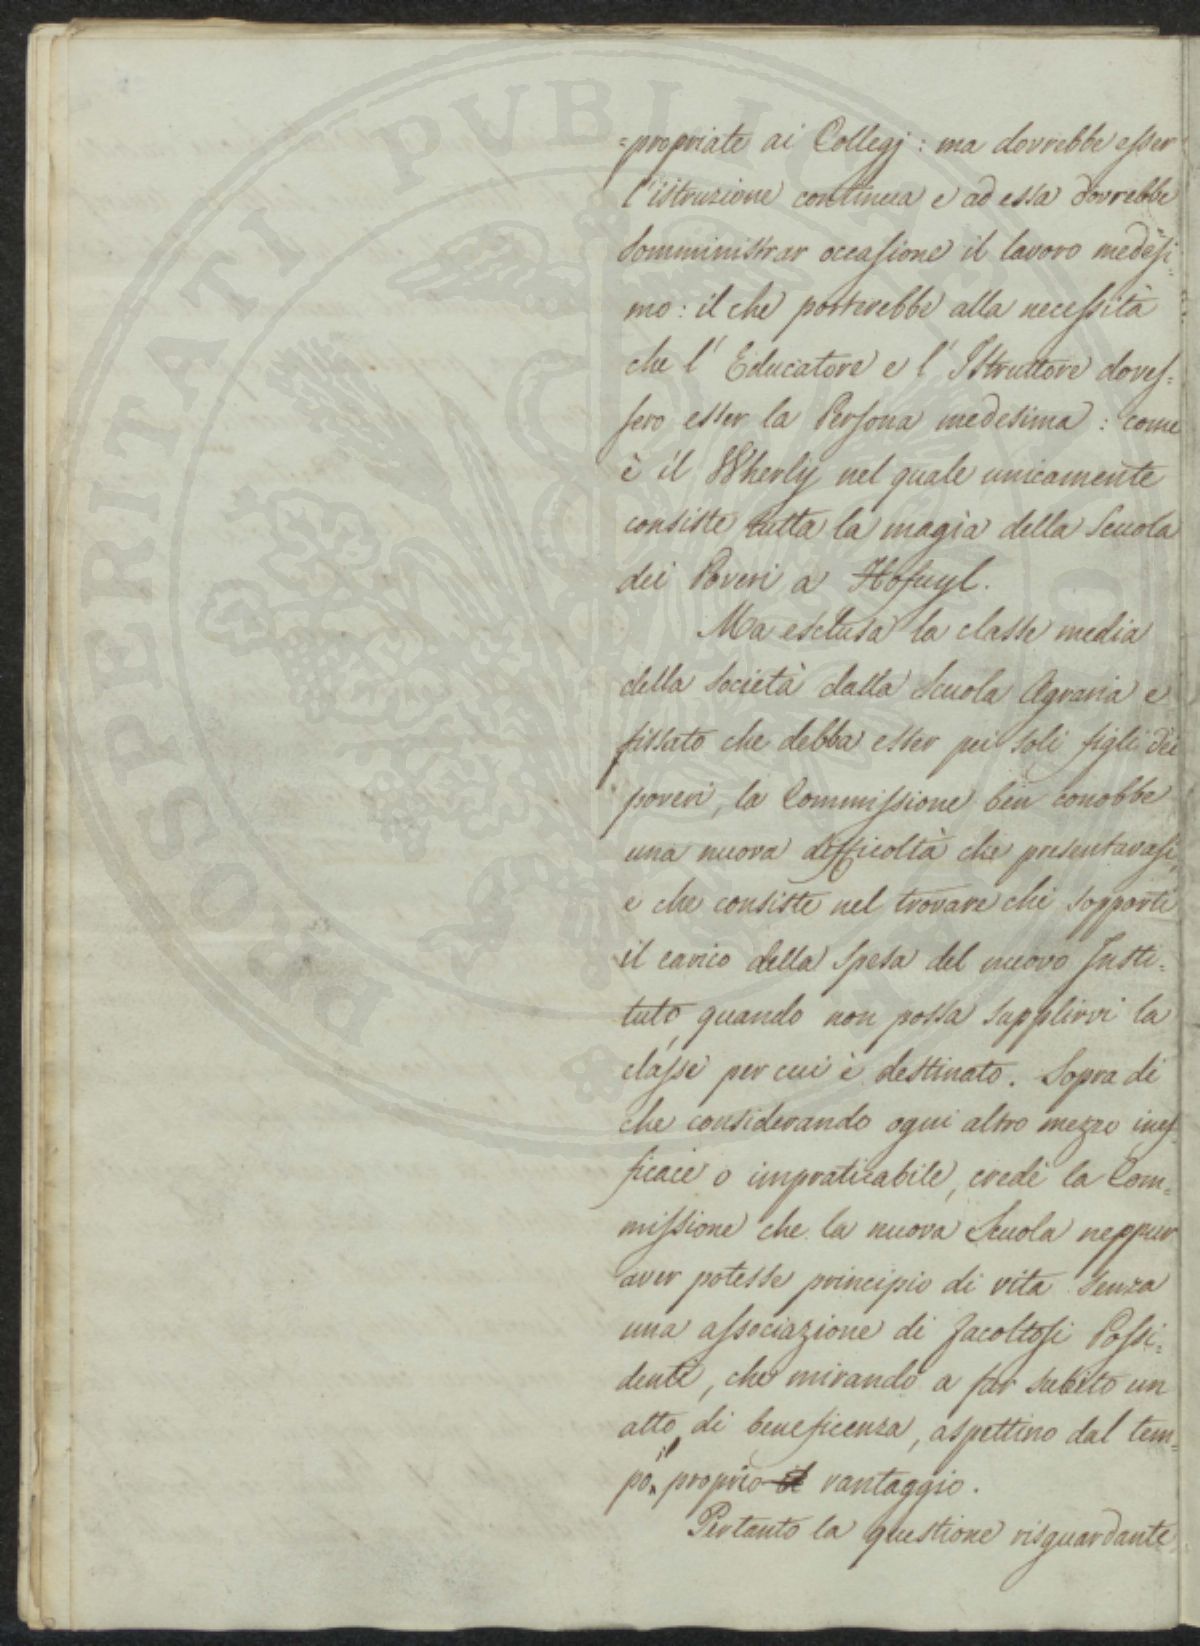 =propriate ai Collegj: ma dovrebbe esser
l'istruzione continua e ad essa dovrebbe
somministrar occasione il lavoro medesi=
mo: il che porterebbe alla necessità
che l'Educatore e l'Istruttore doves=
sero esser la Persona medesima: come
è il Wherly nel quale unicamente
consiste tutta la magia della Scuola
dei Poveri a Hofwyl.
Ma esclusa la classe media
della Società dalla Scuola Agraria e
fissato che debba esser pei soli figli dei
poveri, la Commissione ben conobbe
una nuova difficoltà che presentavasi,
e che consiste nel trovare chi sopporti
il carico della spesa del nuovo Insti=
tuto, quando non possa supplirvi la
classe per cui è destinato. Sopra di
che considerando ogni altro mezzo inef=
ficace o impraticabile, credè la Com=
missione che la nuova Scuola neppur
aver potesse principio di vita senza
una associazione di facoltosi Possi=
denti, che mirando a far subito un
atto di beneficenza, aspettino dal tem=
po il proprio il vantaggio.
Pertanto la questione risguardante
PROSPERITATI PVBLICAE